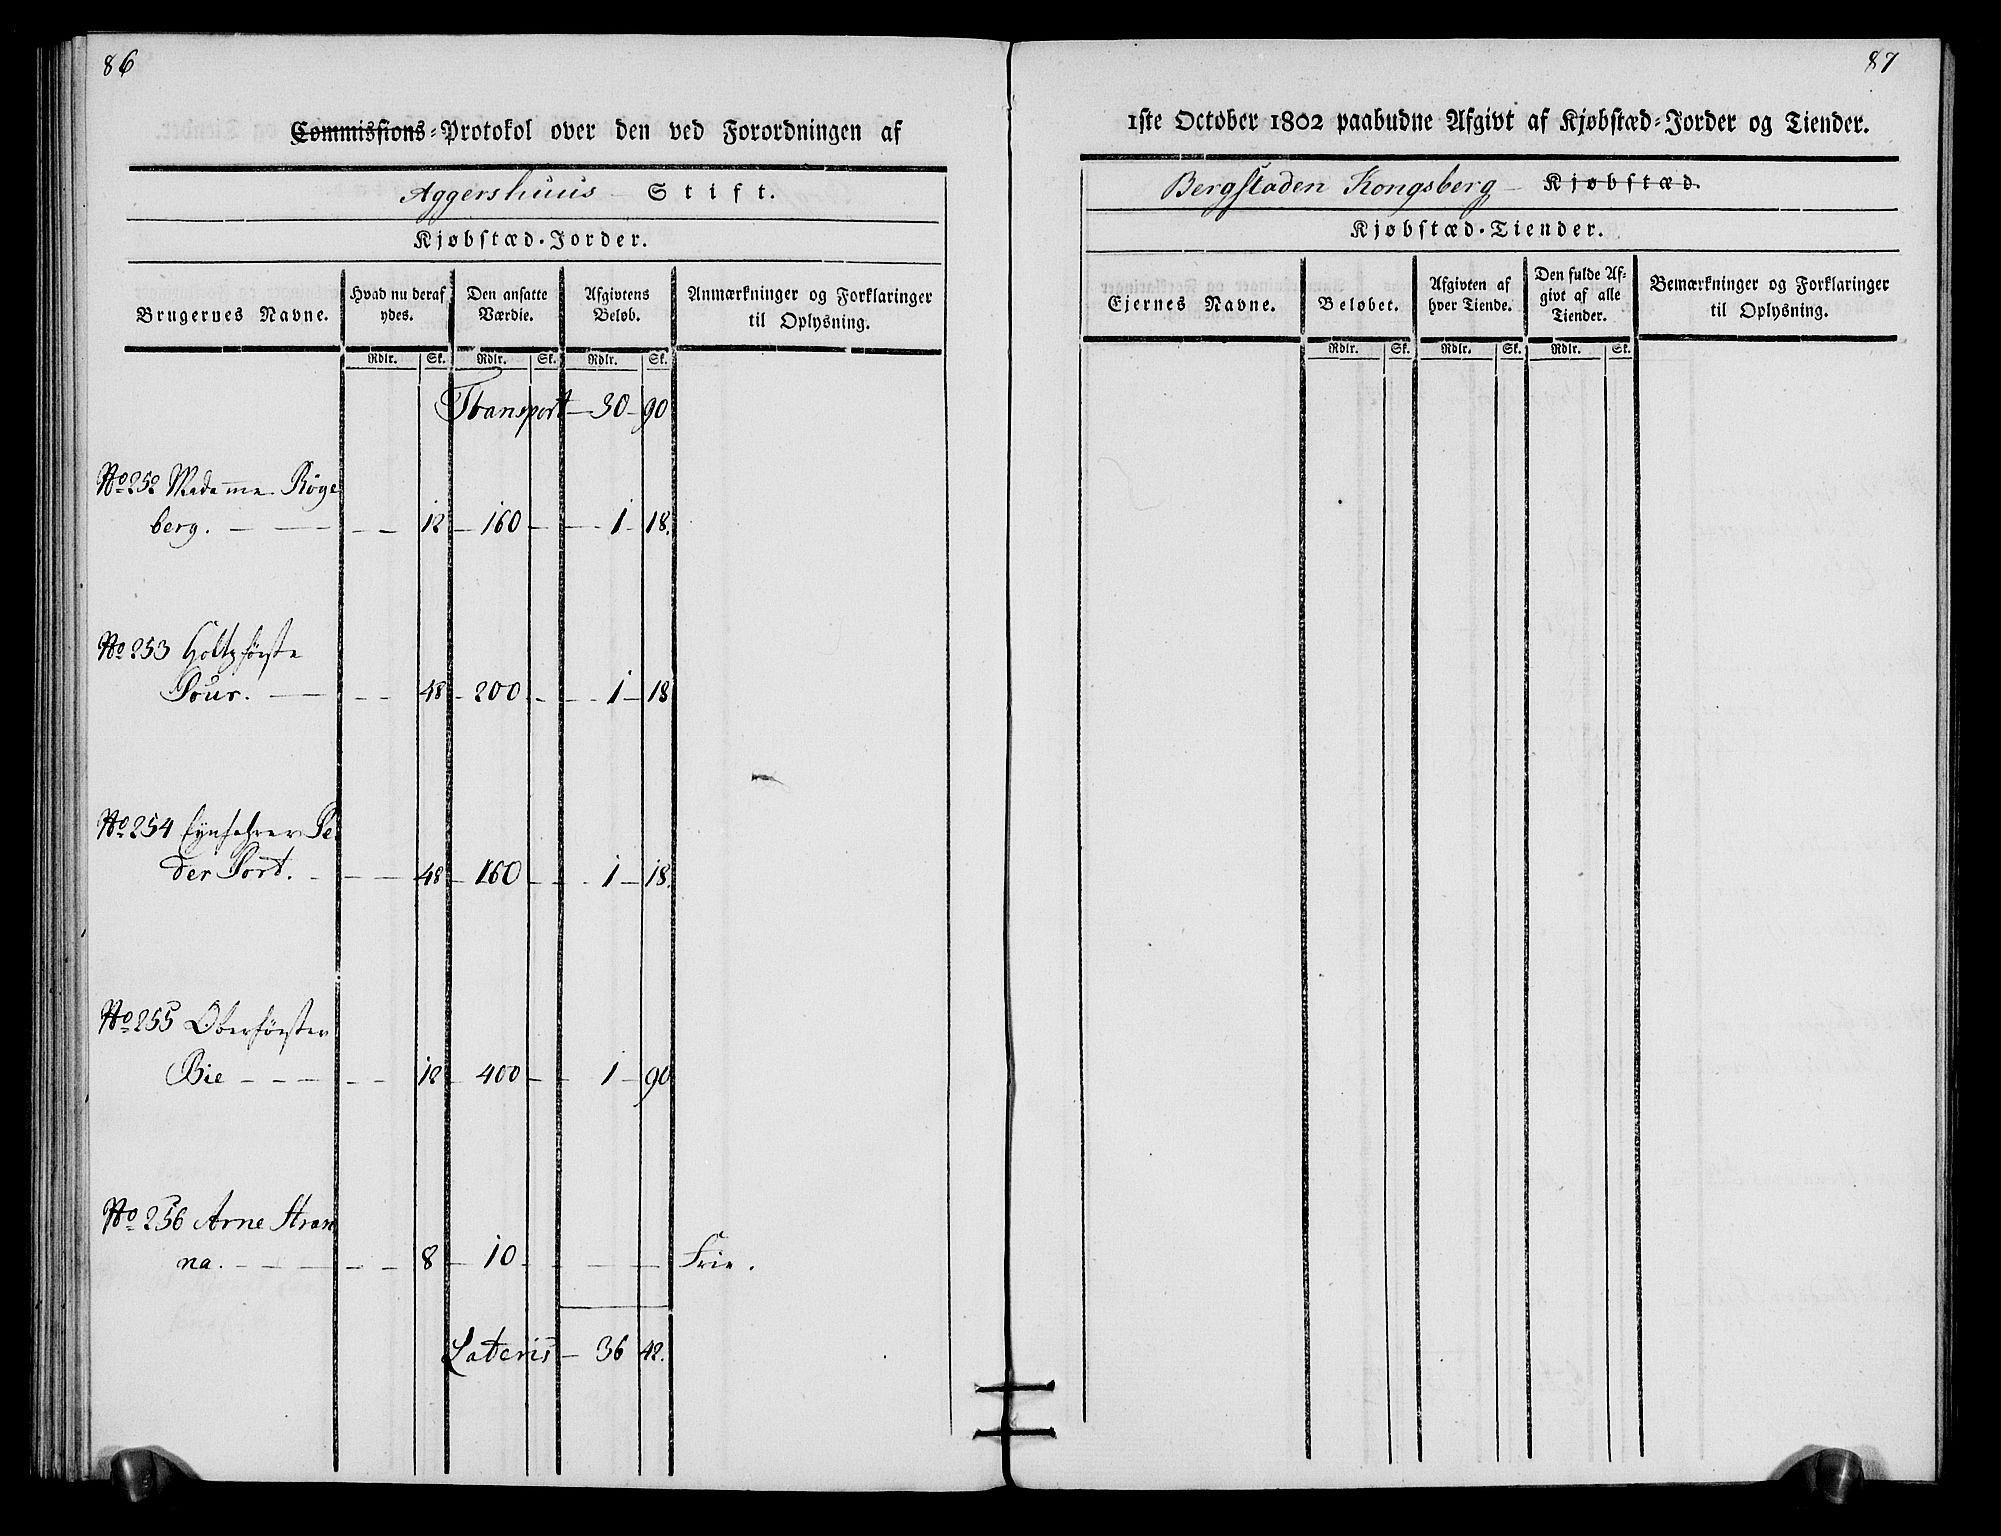 86
Commissions-Protokol over den ved Forordningen af
Aggershuus — Stift.
Kjøbstæd-Jorder.
Brugernes Navne. Hvad nu deraf ydes. Den ansatte Værdie. Afgivtens Beløb. Anmærkninger og Forklaringer til Oplysning.
Rdlr. Sk. Rdlr. Sk. Rdlr. Sk.
Transport — 30 — 90
No 252 Madamme Røge
berg. — — — — 12 — 160 — — 1 — 18.
No 253 Holtzførste
Pour. — — — 48 — 200 — — 1 — 18
No 254 Pe
der Port. — — — 48 — 160 — — 1 — 18.
No 255 Oberførster
Bie — — — — — 18 — 400 — — 1 — 90
No 256 Arne Stran
na. — — — — — 8 — 10 — — — — Frie.
Lateris — 36 42.
87
1ste October 1802 paabudne Afgivt af Kjøbstæd-Jorder og Tiender.
Bergstaden Kongsberg — Kjøbstæd.
Kjøbstæd-Tiender.
Ejernes Navne. Beløbet. Afgivten af hver Tiende. Den fulde Afgivt af alle Tiender. Bemærkninger og Forklaringer til Oplysning.
Rdlr. Sk. Rdlr. Sk. Rdlr. Sk.